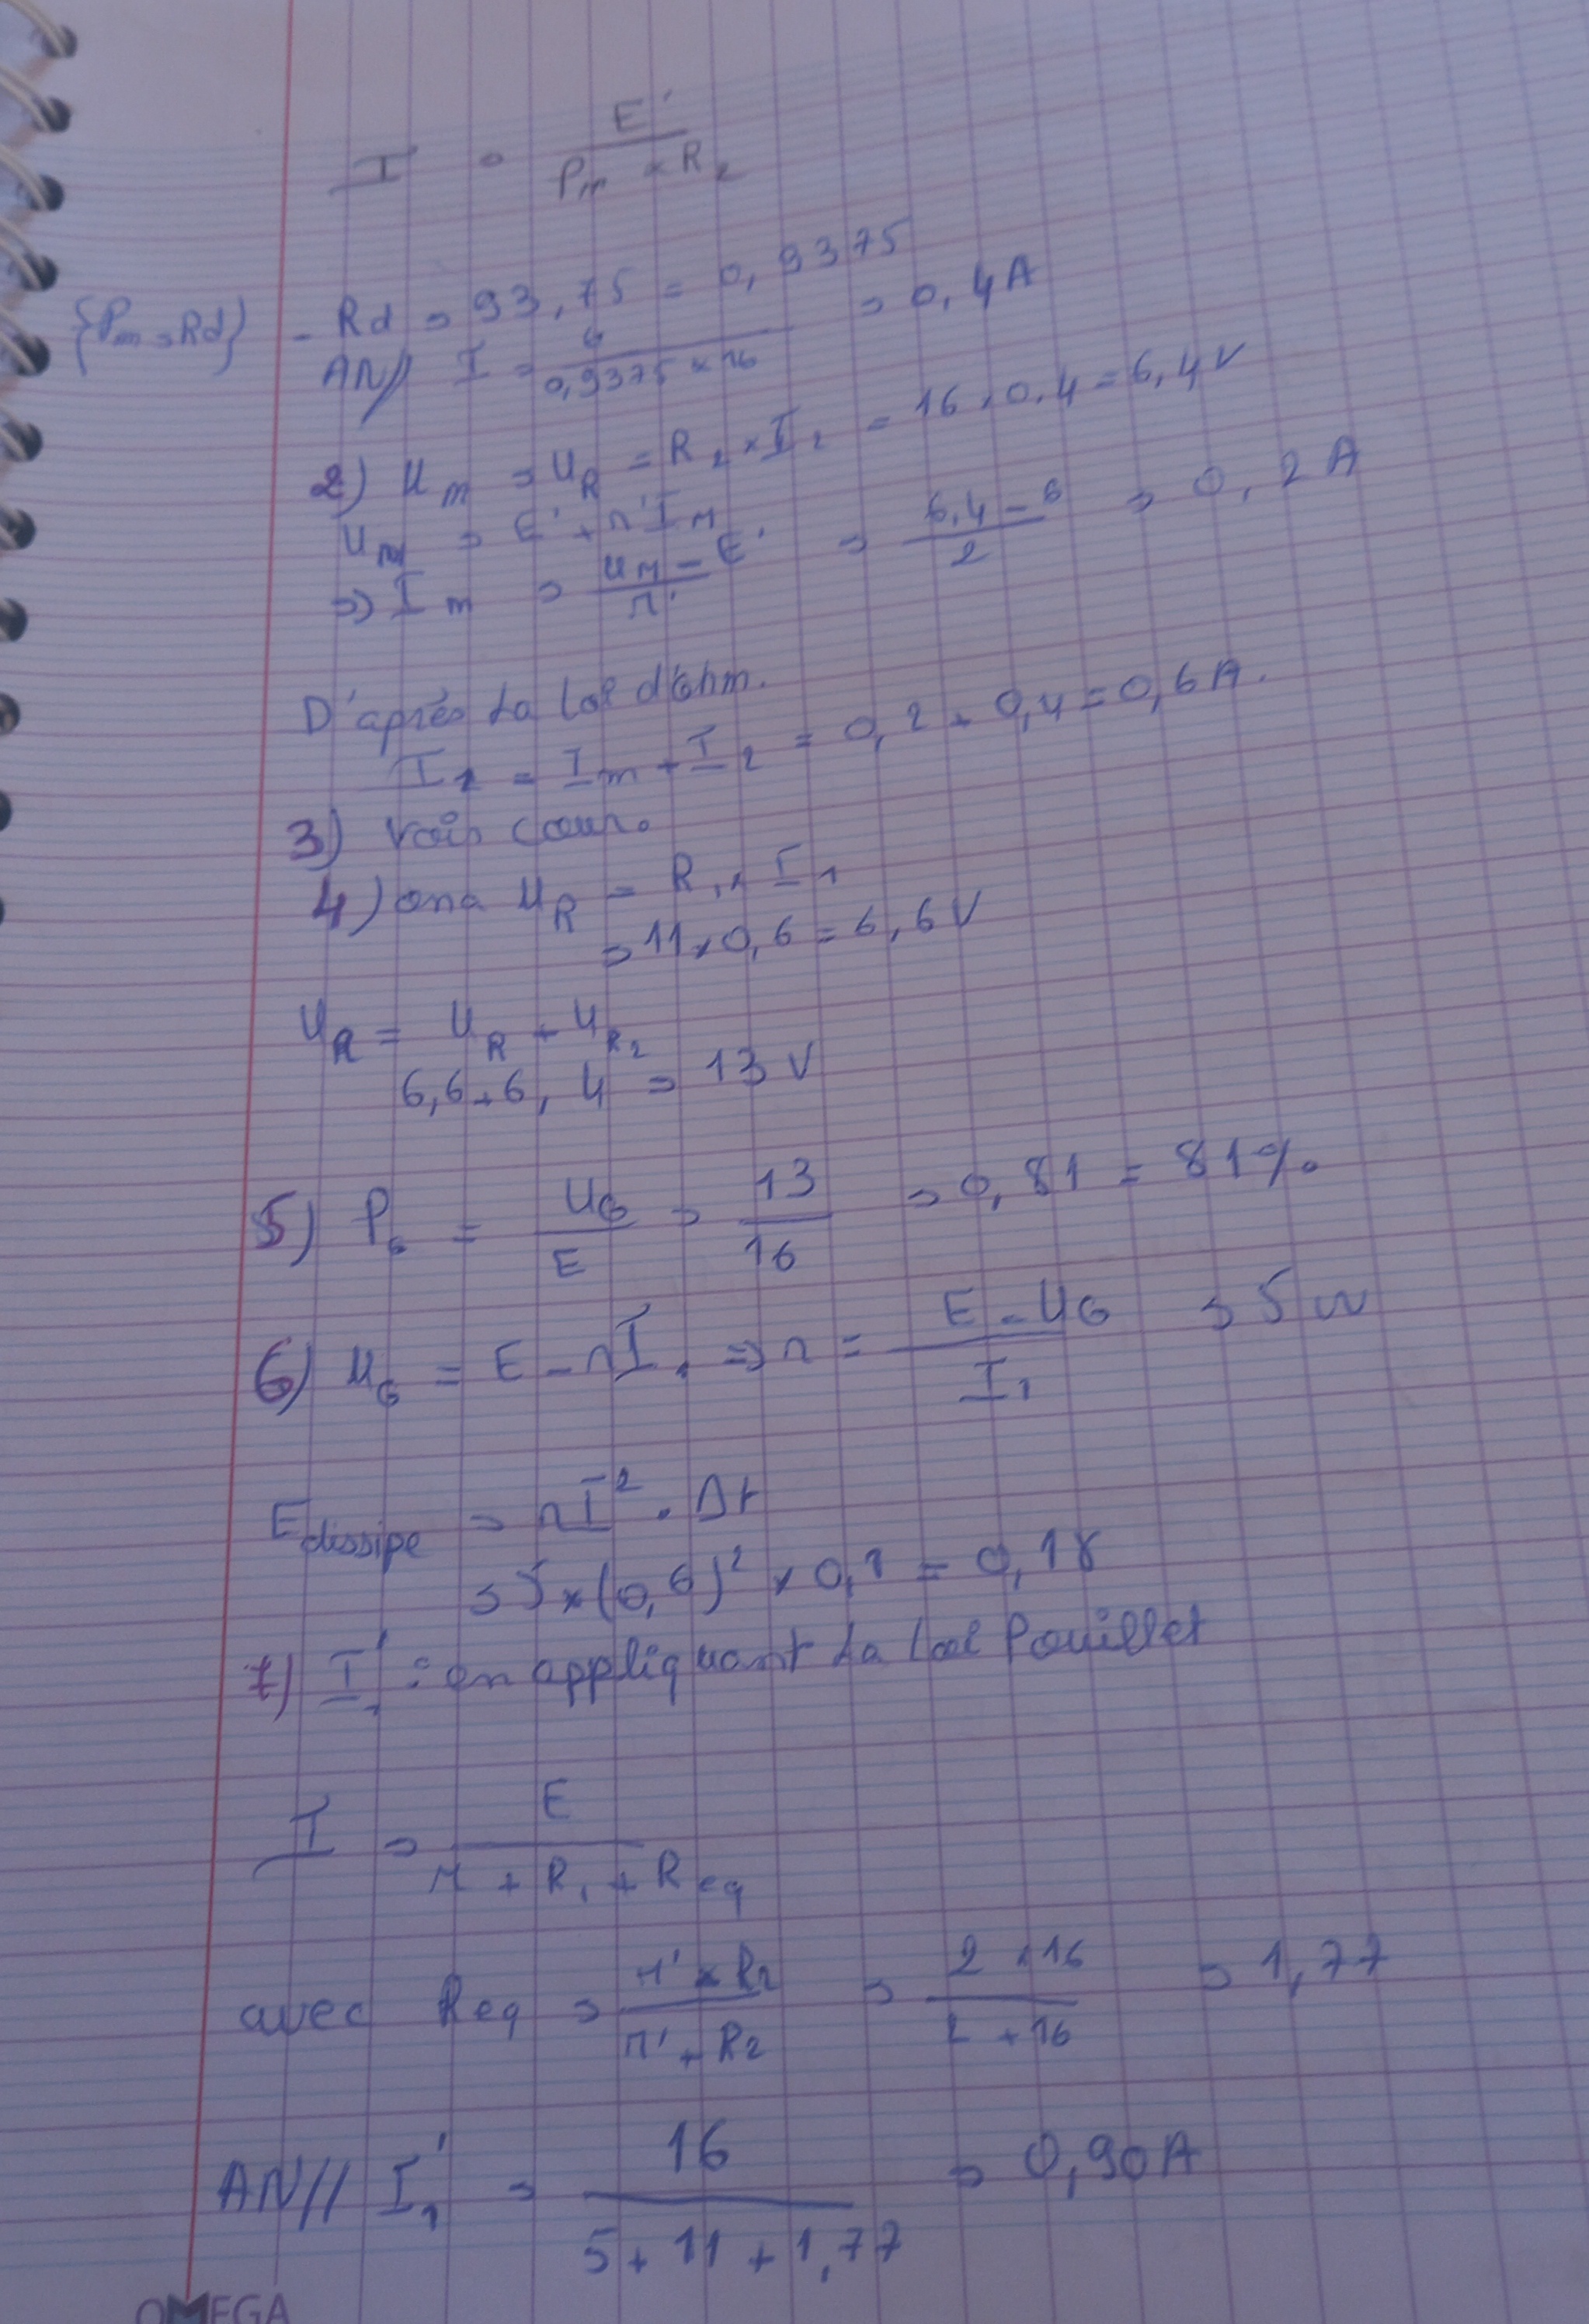 I = E' / Pm × R2
{Pm = Rd} - Rd = 93,75 = 0,9375
AN// I = 6 / 0,9375 × 16 = 0,4A
2) Um = UR = R2 × I2 = 16 × 0,4 = 6,4V
Um = E' + r'IM
=> Im = UM - E' / r' = 6,4 - 6 / 2 = 0,2A
D'après La Loi d'ohm.
I1 = Im + I2 = 0,2 + 0,4 = 0,6A.
3) Voir cour.
4) ona UR = R1 × I1
= 11 × 0,6 = 6,6V
UR = UR + UR2
6,6 + 6,4 = 13V
5) PG = UG / E = 13 / 16 = 0,81 = 81%
6) UG = E - rI1 => r = E - UG / I1 = 5 w
Edissipe = rI² . Δt
= 5 × (0,6)² × 0,1 = 0,18
7) I'1 : en appliquant La Loi Pouillet
I = E / r + R1 + Req
avec Req = r' × R2 / r' + R2 = 2 × 16 / 2 + 16 = 1,77
AN// I'1 = 16 / 5 + 11 + 1,77 = 0,90A
OMEGA